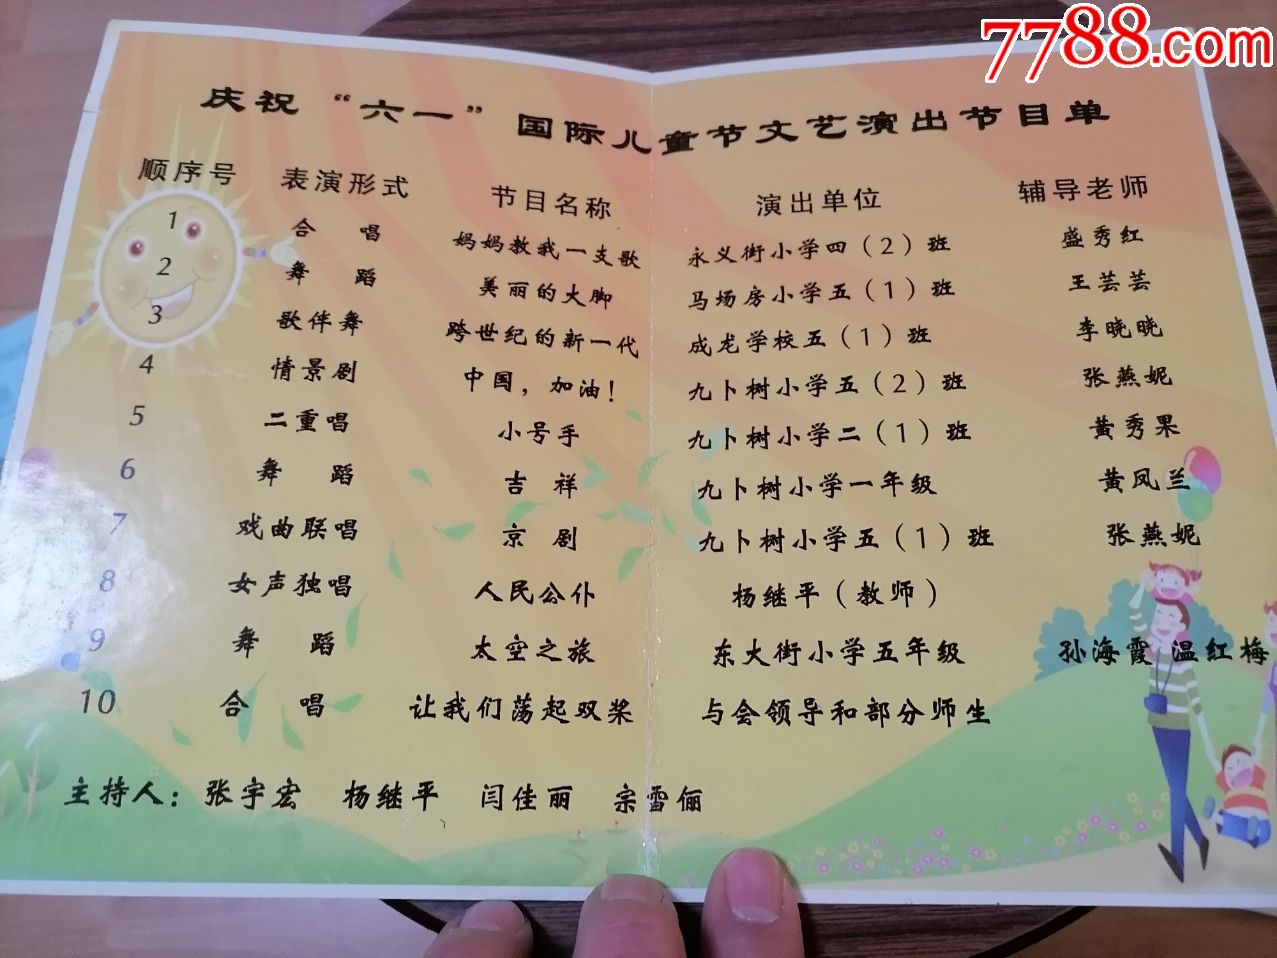 7788.com
庆祝“六一”国际儿童节文艺演出节目单
顺序号 表演形式 节目名称 演出单位 辅导老师
1 合唱 妈妈教我一支歌 永义街小学四(2)班 盛秀红
2 舞蹈 美丽的大脚 马场房小学五(1)班 王芸芸
3 歌伴舞 跨世纪的新一代 成龙学校五(1)班 李晓晓
4 情景剧 中国,加油! 九卜树小学五(2)班 张燕妮
5 二重唱 小号手 九卜树小学二(1)班 黄秀果
6 舞蹈 吉祥 九卜树小学一年级 黄凤兰
7 戏曲联唱 京剧 九卜树小学五(1)班 张燕妮
8 女声独唱 人民公仆 杨继平(教师)
9 舞蹈 太空之旅 东大街小学五年级 孙海霞 温红梅
10 合唱 让我们荡起双桨 与会领导和部分师生
主持人:张宇宏 杨继平 闫佳丽 宗雪俪